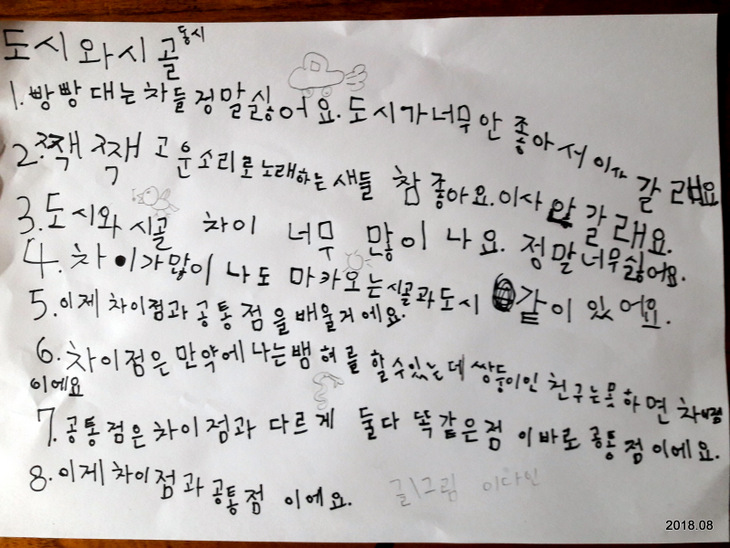 도시와시골 동시
1. 빵빵 대는차들 정말싫어요. 도시가너무안 좋아서 이사 갈래요
2. 짹짹 고운소리로노래하는 새들 참 좋아요. 이사 안 갈래요.
3. 도시와 시골 차이 너무 많이 나요. 정말너무싫어요.
4. 차이가많이 나도 마카오는시골과도시 같이 있어요.
5. 이제 차이점과 공통점을 배울거에요.
6. 차이점은 만약에 나는뱀 혀를 할수있는데 쌍둥이인 친구는못하면 차이점
이에요
7. 공통점은 차이점과 다르게 둘다 똑같은점 이바로 공통점이에요.
8. 이제 차이점과 공통점 이에요.
글\그림 이다인
2018.08